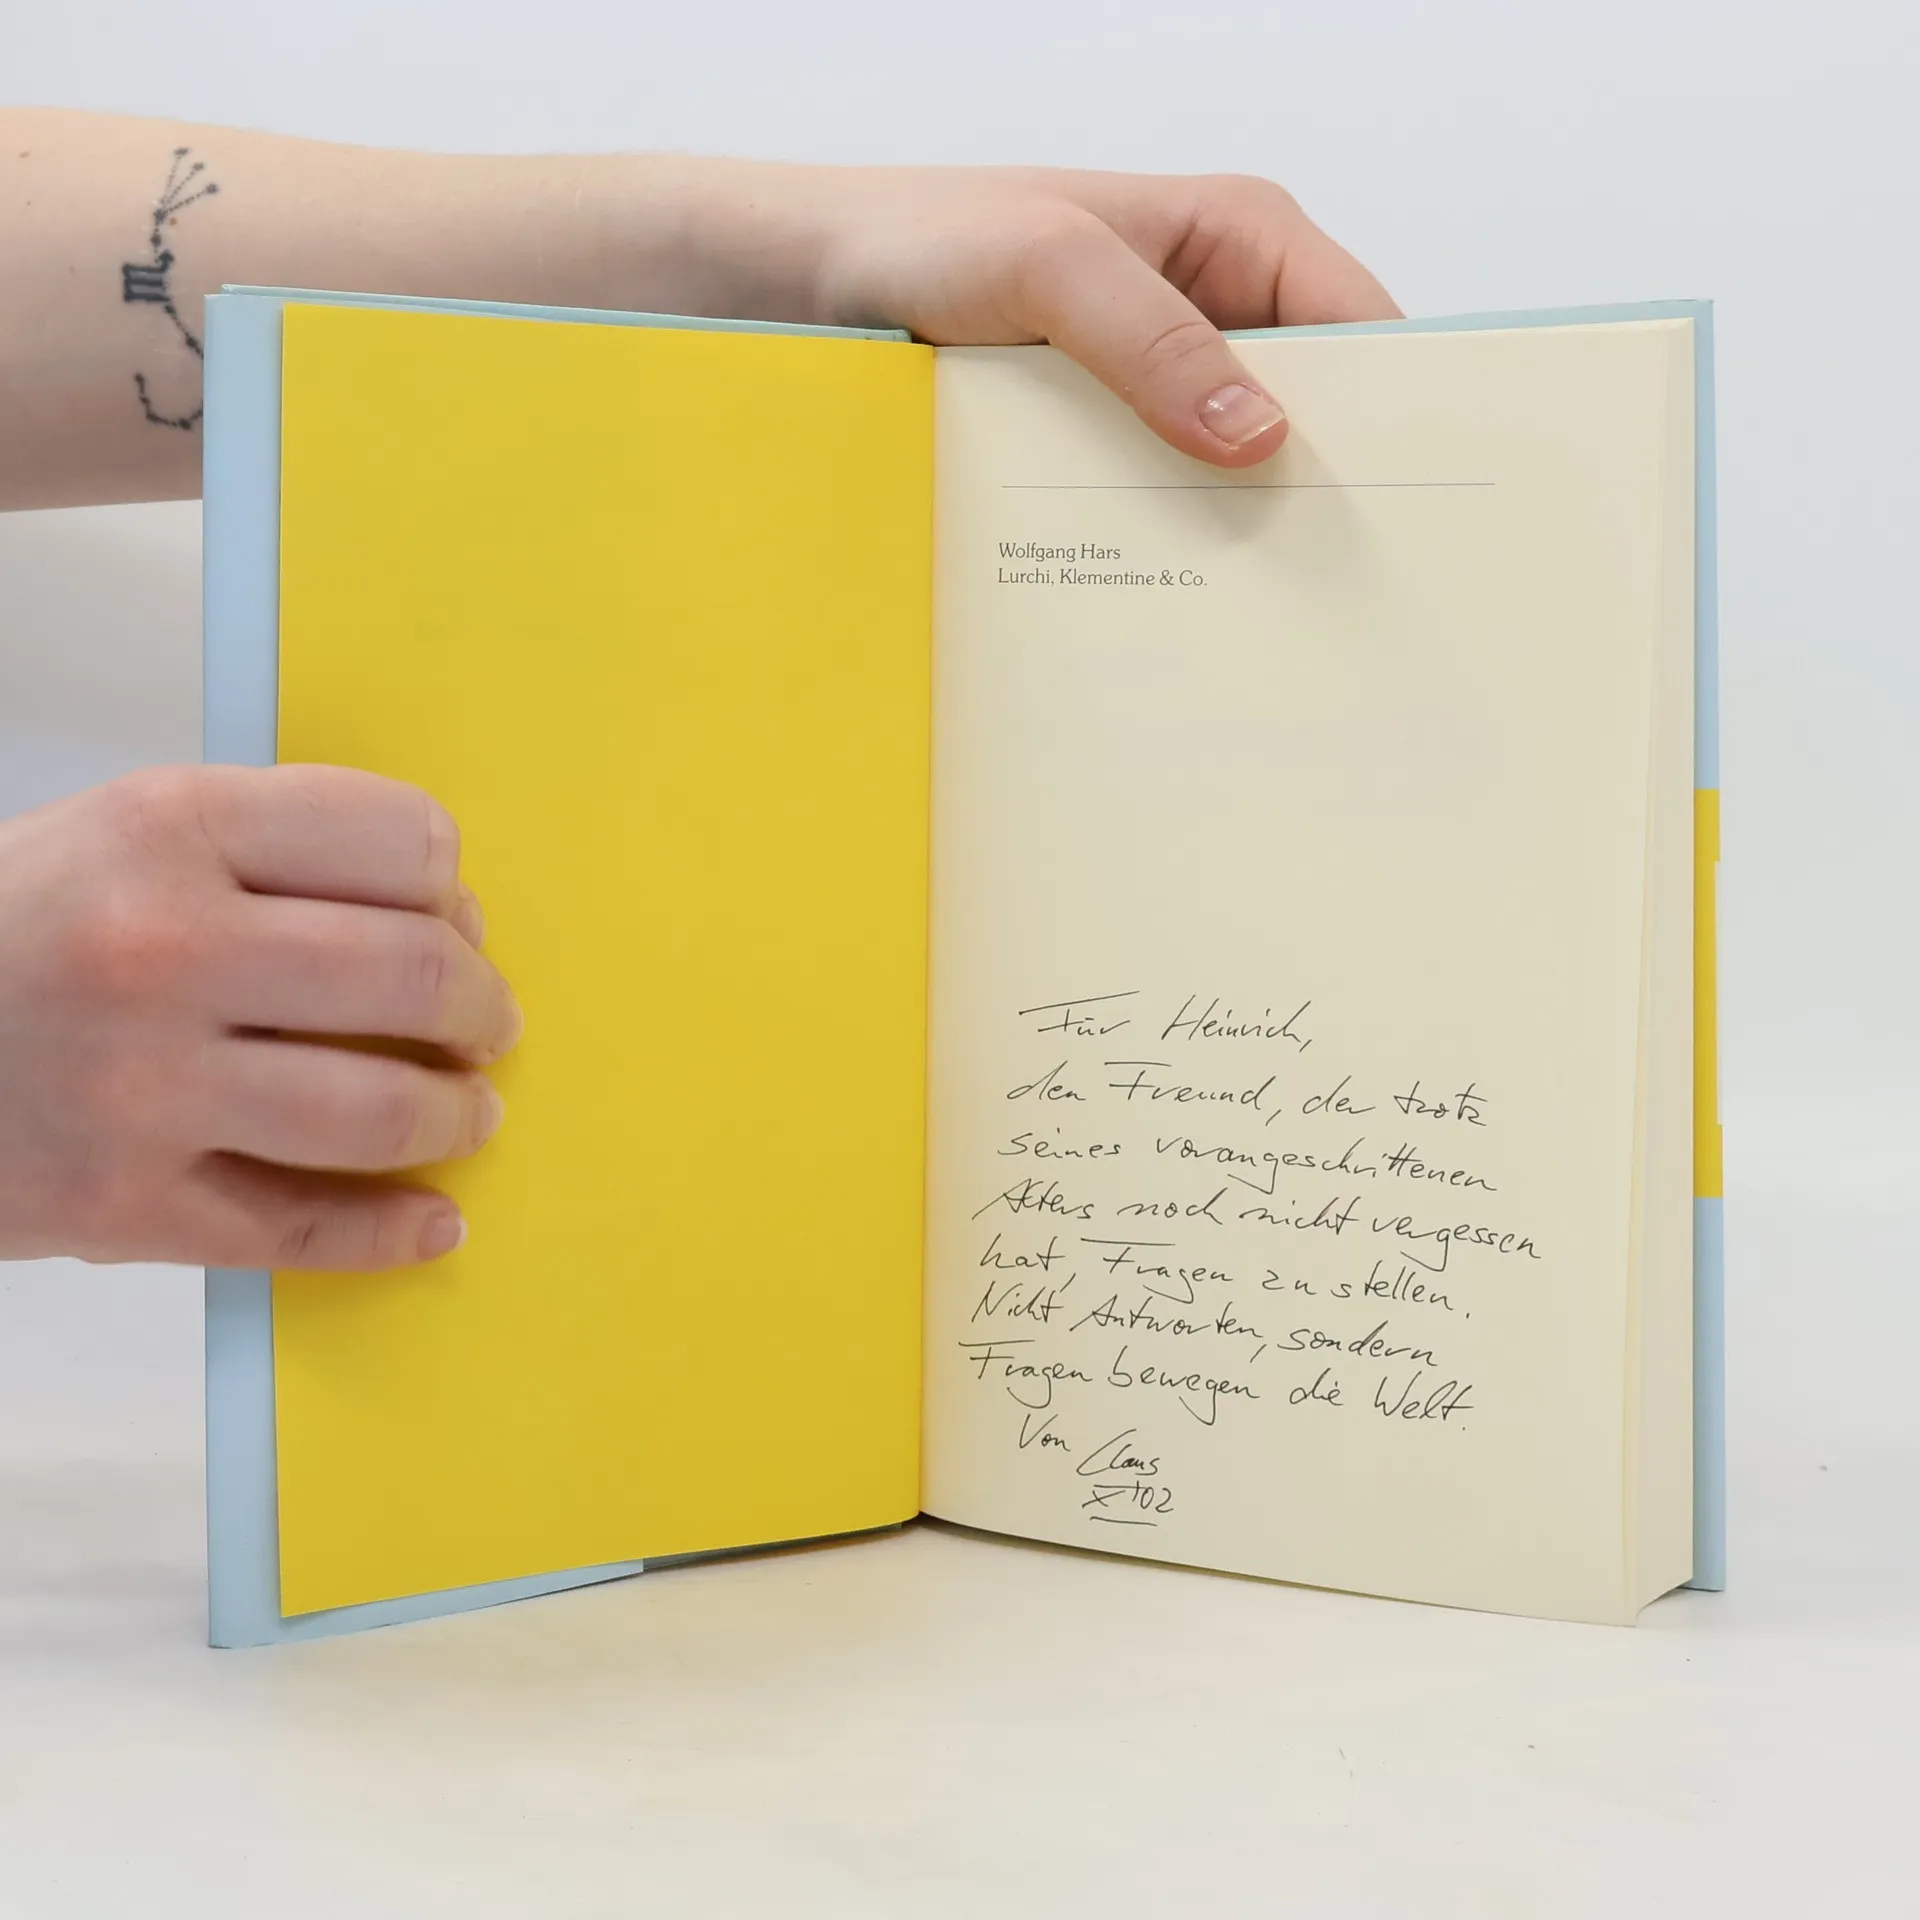 Wolfgang Hars
Lurchi, Klementine & Co.
Für Heinrich,
den Freund, der trotz
seines vorangeschrittenen
Alters noch nicht vergessen
hat, Fragen zu stellen.
Nicht Antworten, sondern
Fragen bewegen die Welt.
Von Claus
X '02